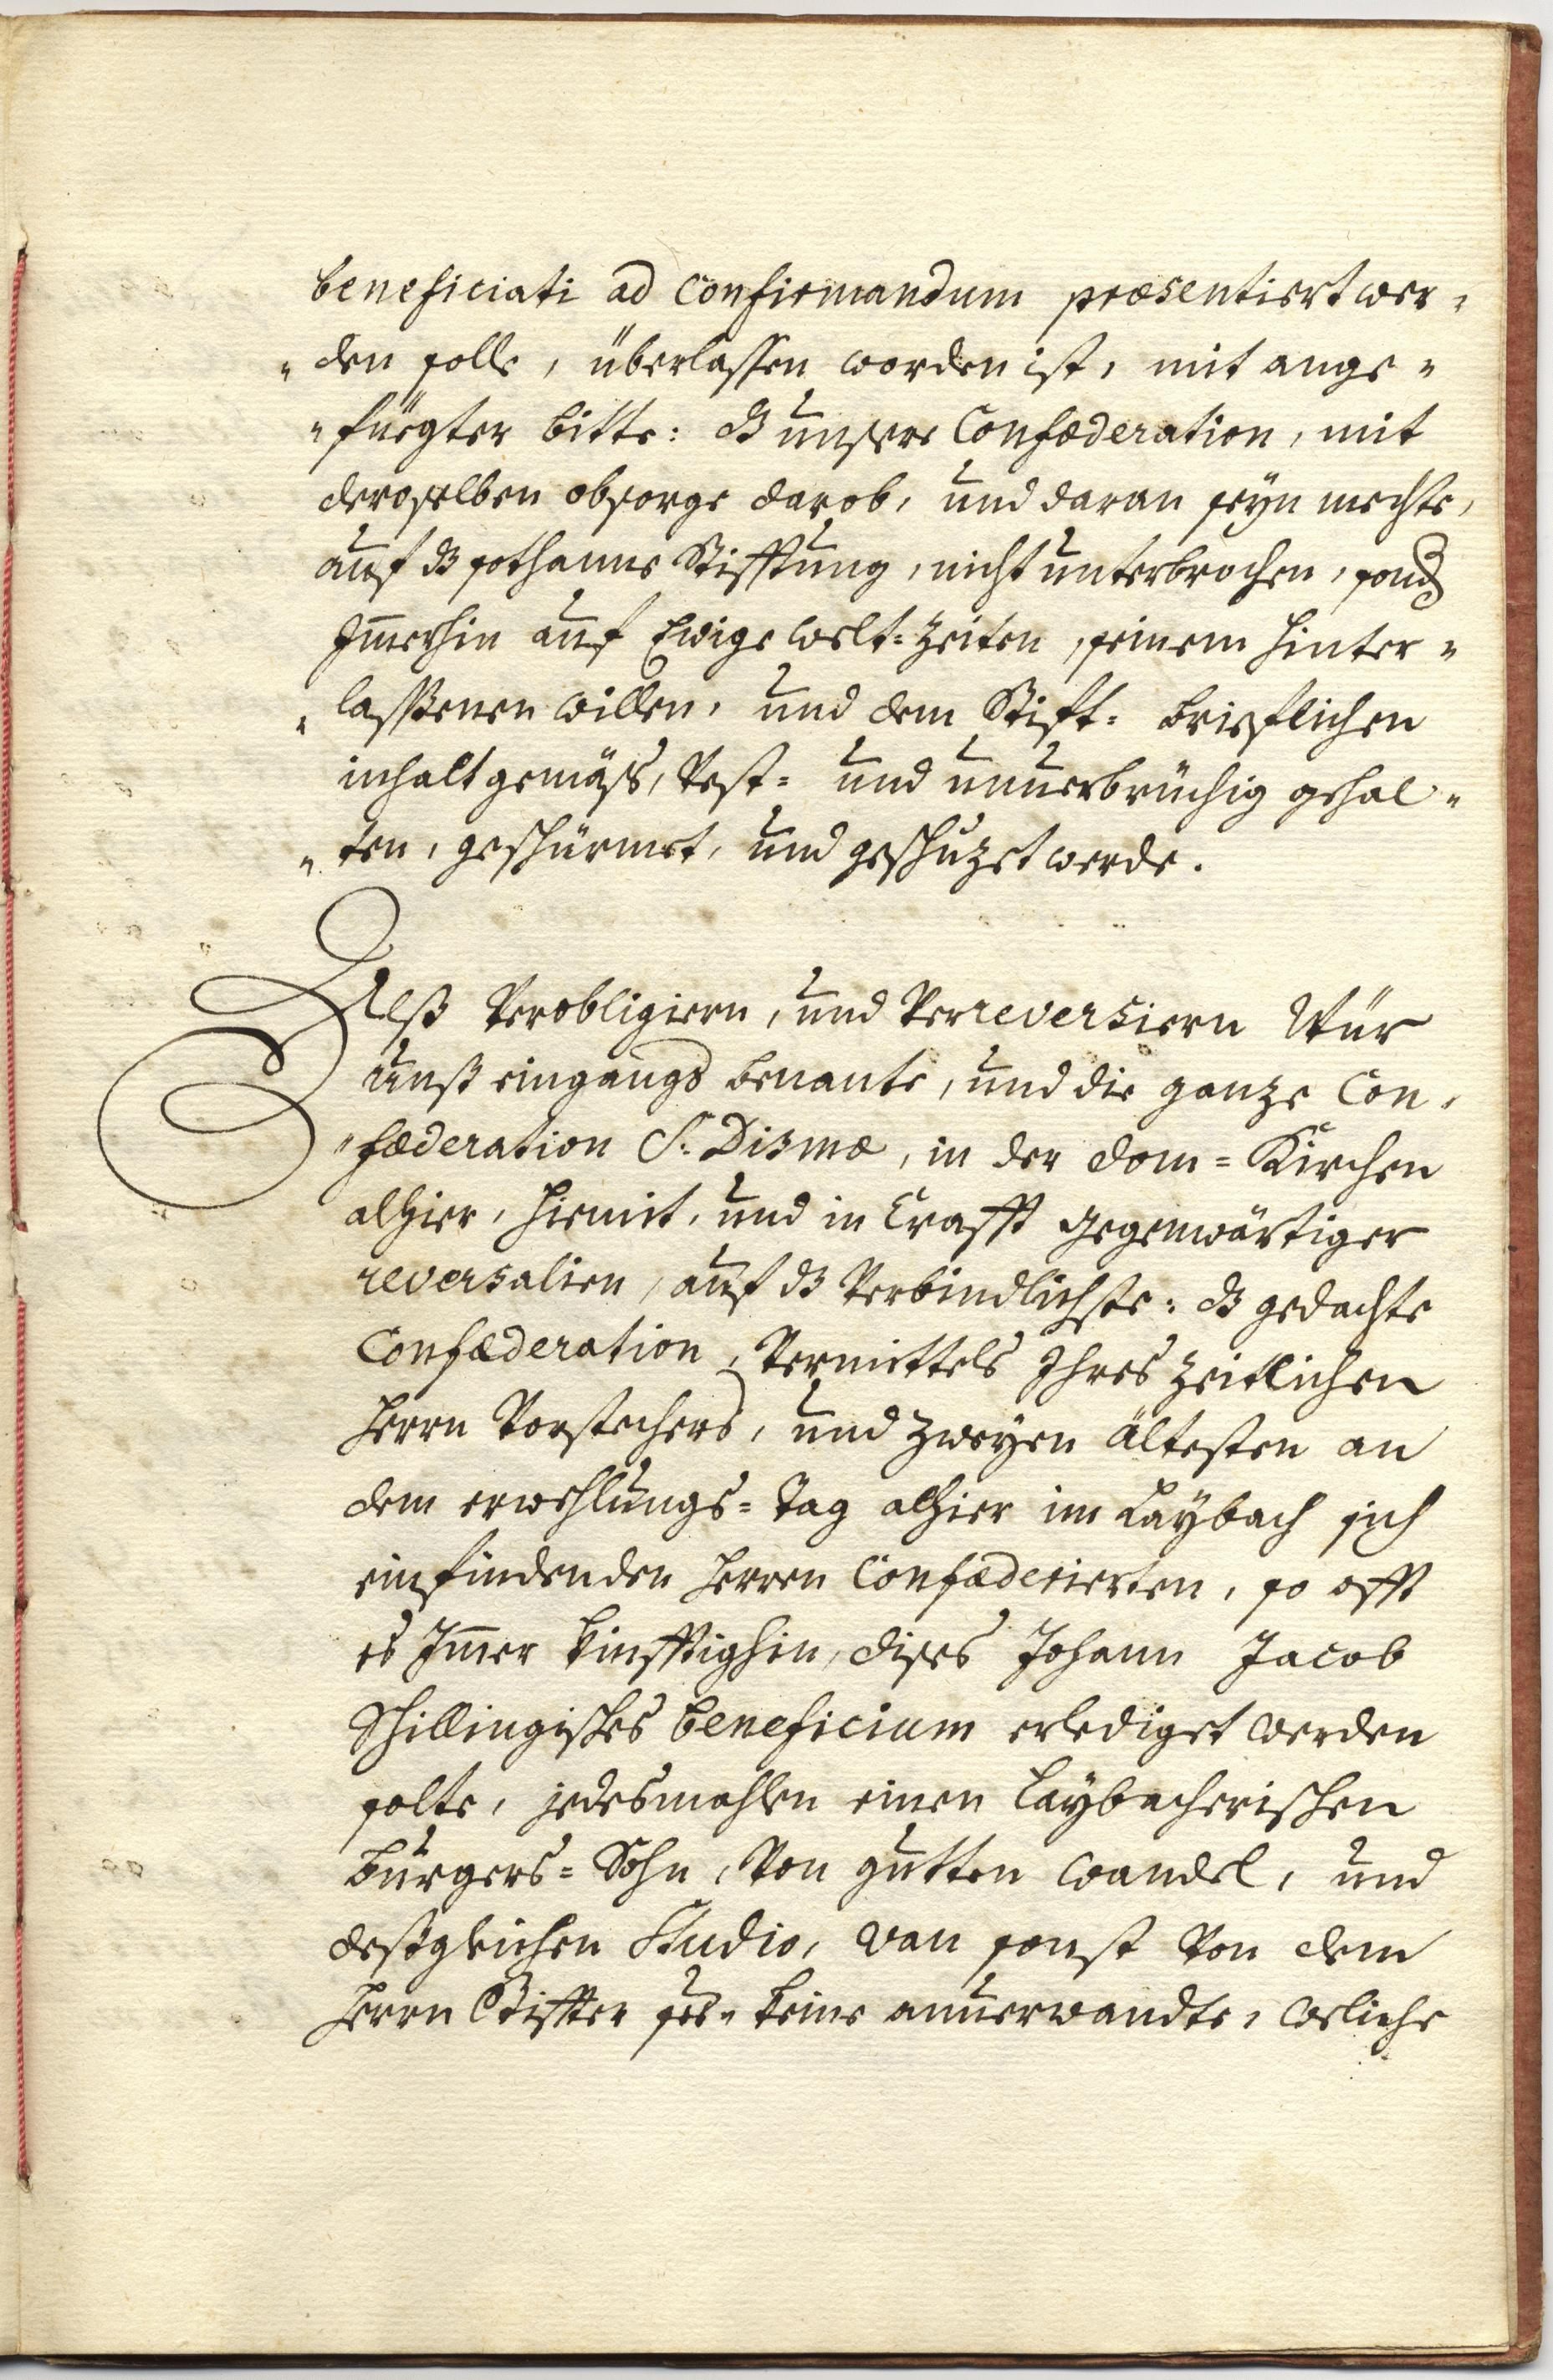 beneficiati ad Confirmandum præsentiert wer=
=den solle, überlassen worden ist, mit ange=
=füegter bitte: dz unsere Confæderation, mit
deroselben obsorge darob, und daran seyn mechte,
auf dz sothanne Stifftung, nicht unterbrochen, sond
Im̄erhin auf Ewige Welt=Zeiten, seinem hinter=
=lassßenen willen, und dem Stifft= brieflichen
inhalt gemäß, Vest= und unuerbrüchig gehal=
=ten, geschürmet, und geschuzet werde.
Alß Verobligiern, und Verreversiern Wür
unß eingangs benante, und die ganze Con=
=fæderation S. Dismæ, in der Dom=Kirchen
alhier, hiemit, und in Crafft gegenwärtiger
reversalien, auf dz Verbindlichste: dz gedachte
Confæderation, Vermittels Ihres Zeitlichen
Herrn Vorstechers, und zweyen ältesten an
dem erwehlungs=Tag alhier im Laybach sich
einfindenden Herren Confæderierten, so offt
es Im̄er kinfftighin, dises Johann Jacob
Schillingisches beneficium erlediget werden
solte, jedesmahlen einen Laybacherischen
burgers=Sohn, Von gutten Wandel, und
deßgleichen Studio, wan sonst Von dem
Herrn Stiffter keine anuerwandte, welche